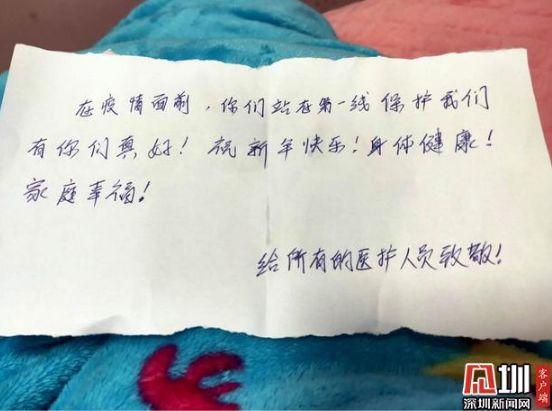 在疫情面前，你们站在第一线保护我们
有你们真好！祝新年快乐！身体健康！
家庭幸福！
给所有的医护人员致敬！
圳
客户端
深圳新闻网